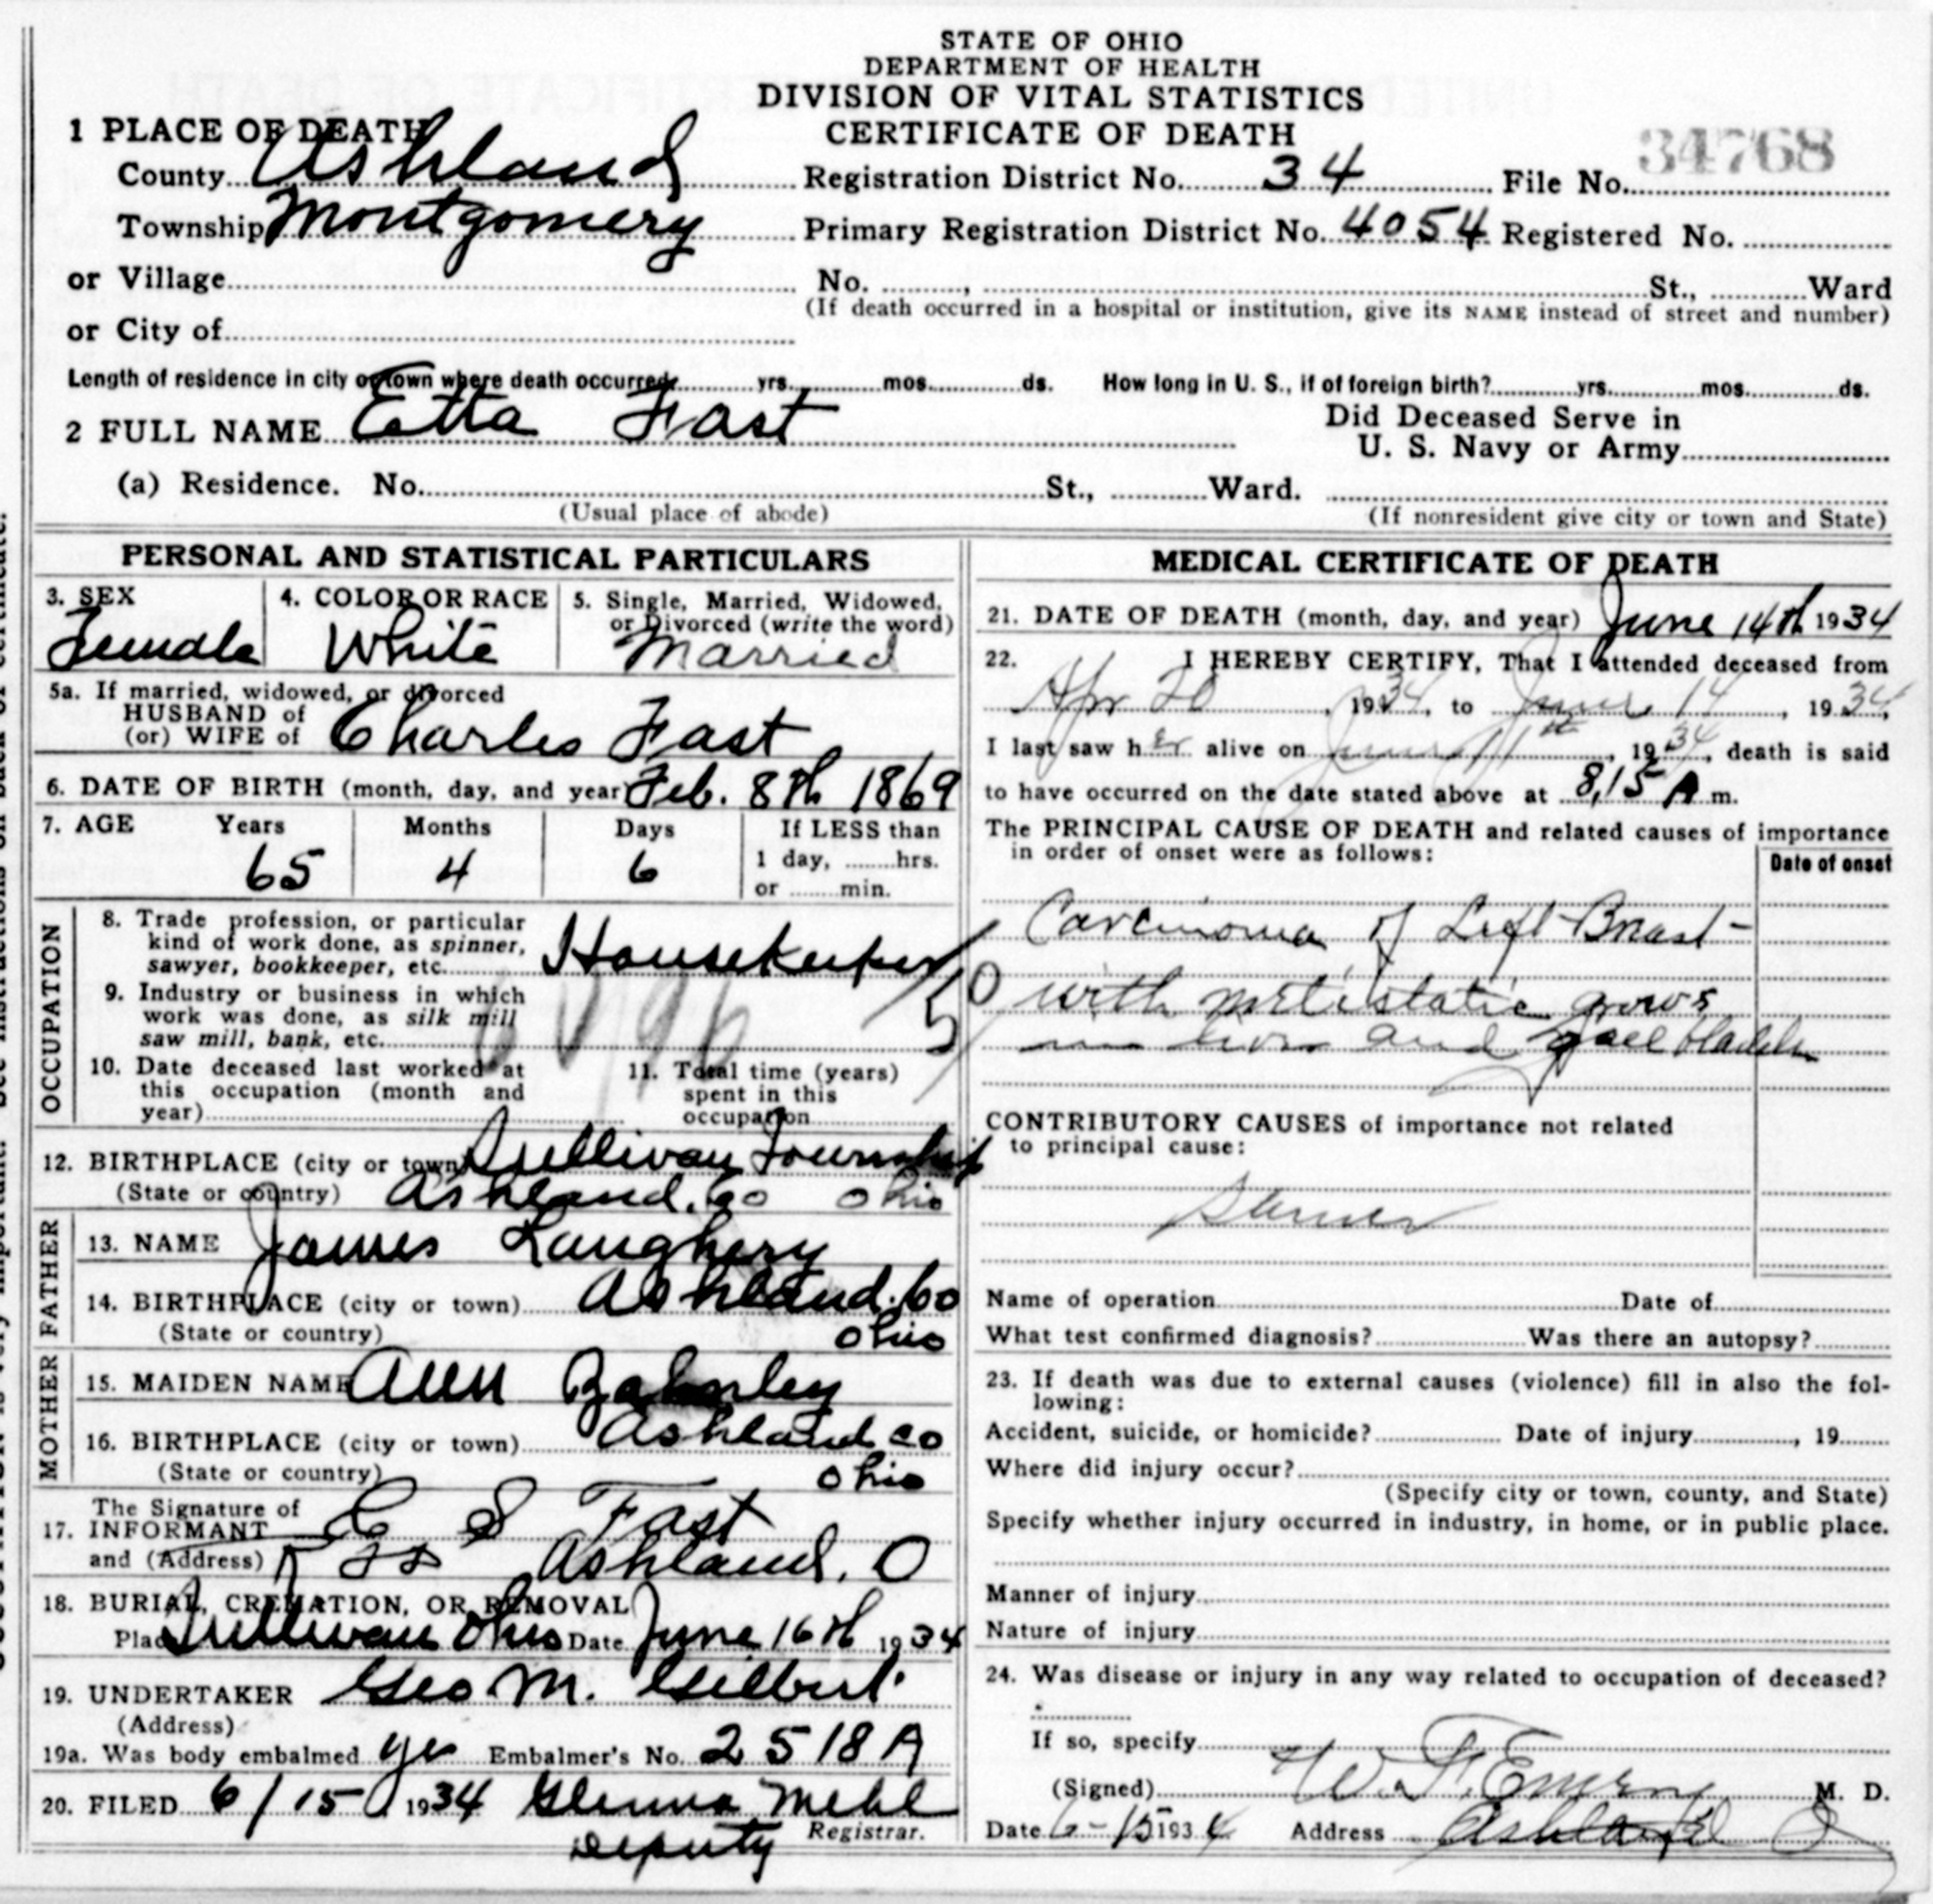 STATE OF OHIO
DEPARTMENT OF HEALTH
DIVISION OF VITAL STATISTICS
CERTIFICATE OF DEATH
34768
1 PLACE OF DEATH
County Ashland Registration District No. 34 File No.
Township Montgomery Primary Registration District No. 4054 Registered No.
or Village No. , St., Ward
(If death occurred in a hospital or institution, give its NAME instead of street and number)
or City of
Length of residence in city or town where death occurred yrs. mos. ds. How long in U. S., if of foreign birth? yrs. mos. ds.
2 FULL NAME Etta Fast Did Deceased Serve in U. S. Navy or Army
(a) Residence. No. St., Ward.
(Usual place of abode) (If nonresident give city or town and State)
PERSONAL AND STATISTICAL PARTICULARS
3. SEX 4. COLOR OR RACE 5. Single, Married, Widowed, or Divorced (write the word)
Female White Married
5a. If married, widowed, or divorced
HUSBAND of
(or) WIFE of Charles Fast
6. DATE OF BIRTH (month, day, and year) Feb. 8th 1869
7. AGE Years Months Days If LESS than
65 4 6 1 day, hrs.
or min.
OCCUPATION
8. Trade profession, or particular
kind of work done, as spinner,
sawyer, bookkeeper, etc. Housekeeper
9. Industry or business in which
work was done, as silk mill
saw mill, bank, etc.
10. Date deceased last worked at
this occupation (month and
year)
11. Total time (years)
spent in this
occupation
12. BIRTHPLACE (city or town) Sullivan Township
(State or country) Ashland. Co Ohio
FATHER
13. NAME James Laughery
14. BIRTHPLACE (city or town) Ashland. Co
(State or country) Ohio
MOTHER
15. MAIDEN NAME Ann
16. BIRTHPLACE (city or town) Ashland co
(State or country) Ohio
The Signature of
17. INFORMANT C S Fast
and (Address) Ashland, O
18. BURIAL, CREMATION, OR REMOVAL
Place Sullivan Ohio Date June 16th 1934
19. UNDERTAKER Geo M. Gilbert.
(Address)
19a. Was body embalmed yes Embalmer's No. 2518 A
20. FILED 6/15 1934 Glenna Mehl
Deputy Registrar.
MEDICAL CERTIFICATE OF DEATH
21. DATE OF DEATH (month, day, and year) June 14th 1934
22. I HEREBY CERTIFY, That I attended deceased from
Apr 20, 1934, to June 14, 1934,
I last saw her alive on June 11th, 1934, death is said
to have occurred on the date stated above at 8,15 A m.
The PRINCIPAL CAUSE OF DEATH and related causes of importance
in order of onset were as follows:
Date of onset
Carcinoma of Left Breast -
50 with metistatic grows
in liver and gall bladder
CONTRIBUTORY CAUSES of importance not related
to principal cause:
Name of operation Date of
What test confirmed diagnosis? Was there an autopsy?
23. If death was due to external causes (violence) fill in also the fol-
lowing:
Accident, suicide, or homicide? Date of injury , 19
Where did injury occur?
(Specify city or town, county, and State)
Specify whether injury occurred in industry, in home, or in public place.
Manner of injury
Nature of injury
24. Was disease or injury in any way related to occupation of deceased?
If so, specify
(Signed) W. F. Emery M. D.
Date 6-15 1934 Address Ashland O